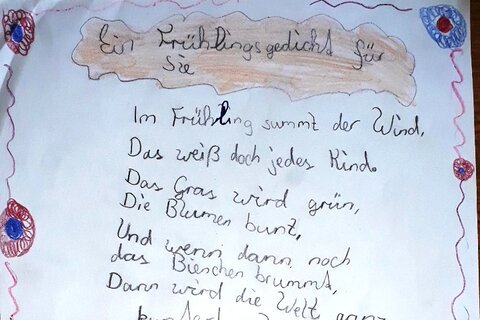 Ein Frühlingsgedicht für
Sie
Im Frühling summt der Wind,
Das weiß doch jedes Kind.
Das Gras wird grün,
Die Blumen bunt,
Und wenn dann noch
das Bienchen brummt,
Dann wird die Welt ganz